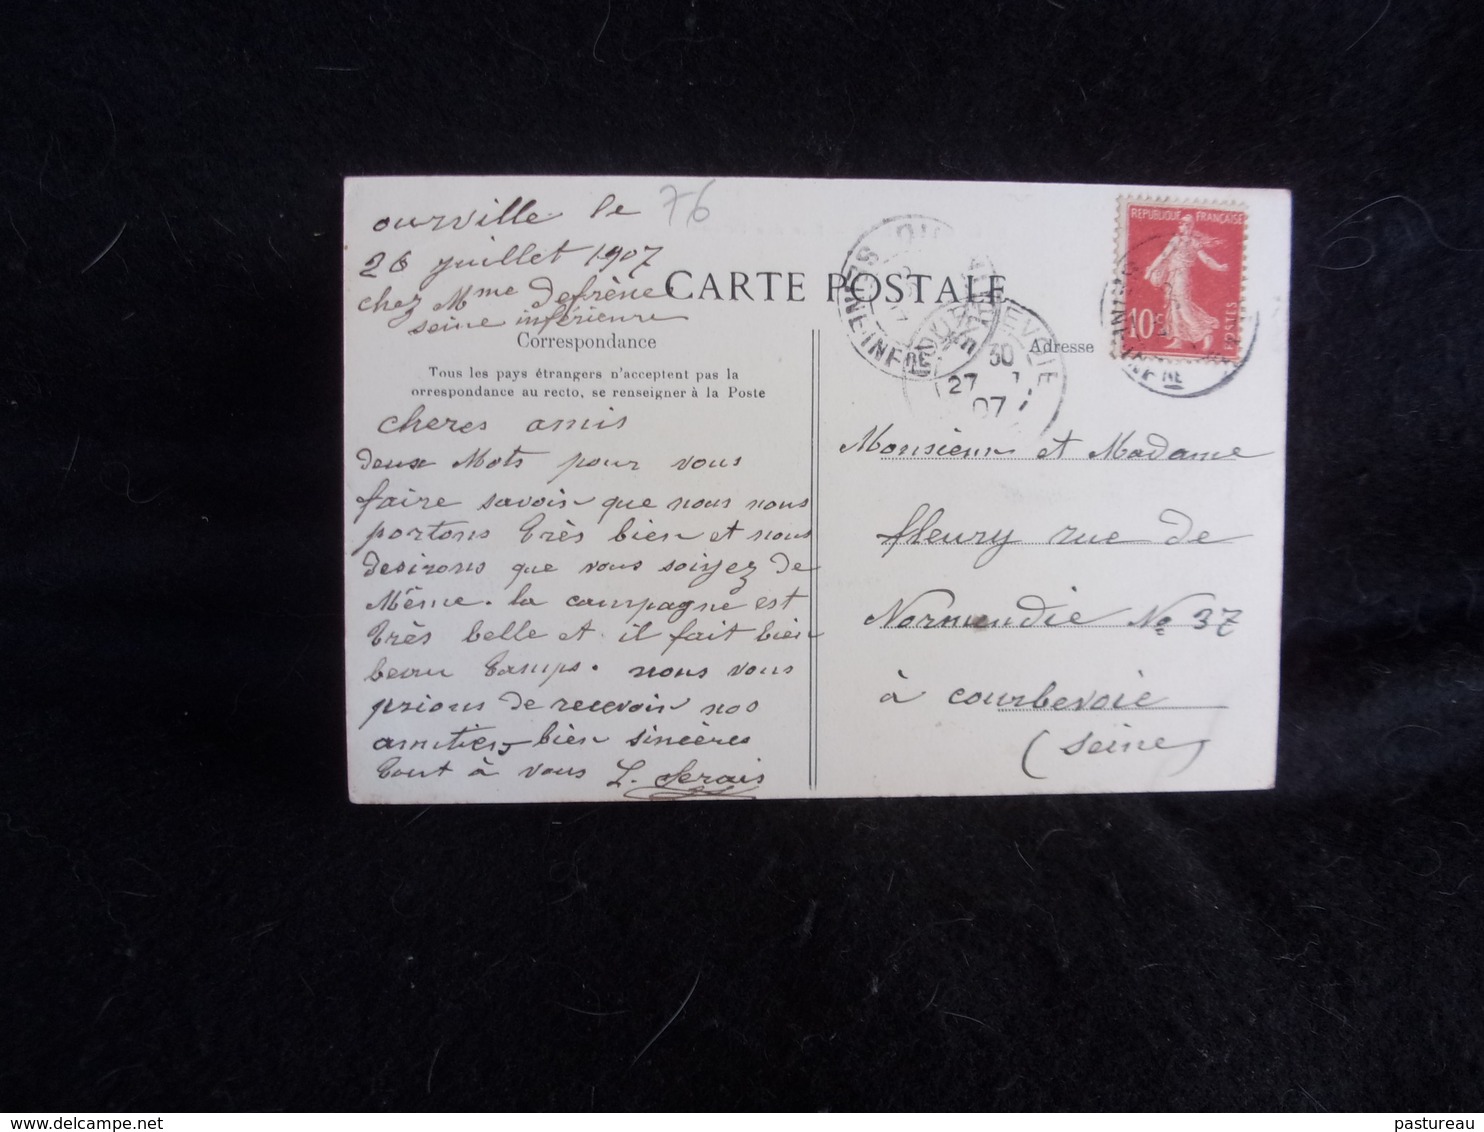 ourville le
76
26 juillet 1907
chez Mme Defrène
seine inférieure
CARTE POSTALE
Correspondance
Tous les pays étrangers n'acceptent pas la
orrespondance au recto, se renseigner à la Poste
cheres amis
deux Mots pour vous
faire savoir que nous nous
portons très bien et nous
desirons que vous soiyez de
Même. la campagne est
très belle et il fait bien
beau tamps. nous vous
prions de recevoir nos
amitiers bien sincères
tout à vous L.
RÉPUBLIQUE FRANÇAISE
10c POSTES
30
27
07
Adresse
Monsieur et Madame
fleury rue de
Normendie No 37
à courbevoie
(seine)
pastureau